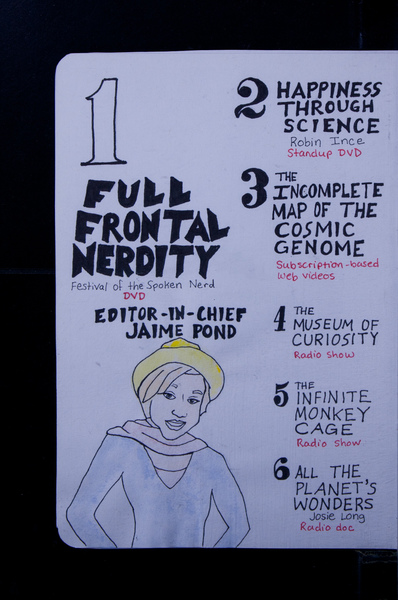 1
FULL
FRONTAL
NERDITY
Festival of the Spoken Nerd
DVD
EDITOR-IN-CHIEF
JAIME POND
2 HAPPINESS
THROUGH
SCIENCE
Robin Ince
Standup DVD
3 THE
INCOMPLETE
MAP OF THE
COSMIC
GENOME
Subscription-based
Web videos
4 THE
MUSEUM OF
CURIOSITY
Radio Show
5 THE
INFINITE
MONKEY
CAGE
Radio Show
6 ALL THE
PLANET'S
WONDERS
Josie Long
Radio doc